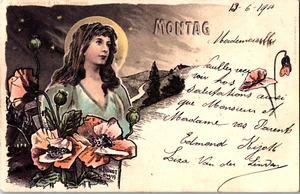 MONTAG
13-6-19
Mademoiselle
Veuillez recevoir
nos
salutations ainsi
que Monsieur et
Madame vos Parents
Edmond
Van der Linden